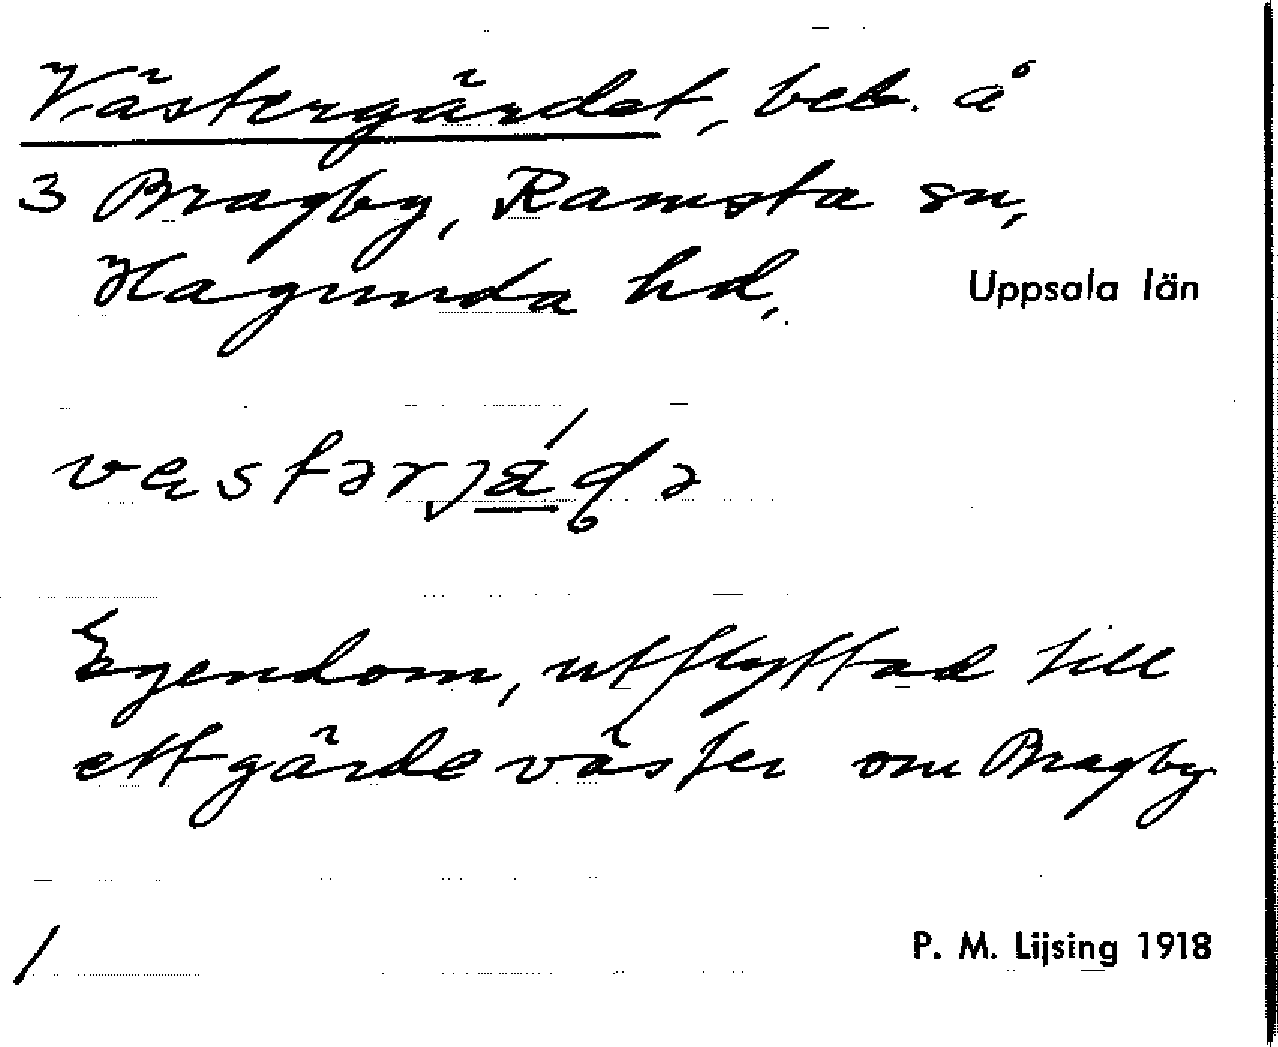 Västergärdet, beb. å
3 Bragby, Ramsta sn,
Hagunda hd,
Uppsala län
Egendom, utflyttad till
ett gärde väster om Bragby
/
P. M. Lijsing 1918